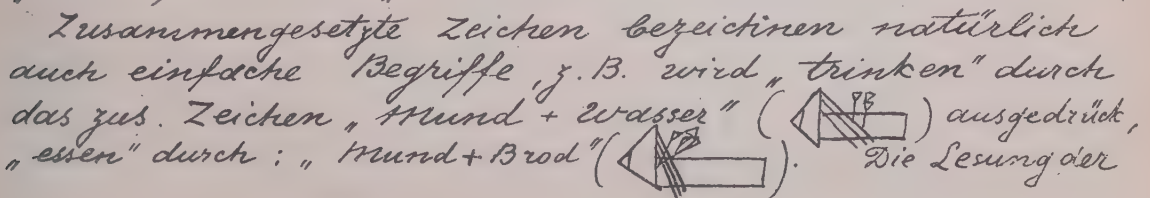 Zusammengesetzte Zeichen bezeichnen natürlich
auch einfache Begriffe, z. B. wird „trinken" durch
das zus. Zeichen „Mund + Wasser" ( ) ausgedrück,
„essen" durch: „Mund + Brod" ( ). Die Lesung der